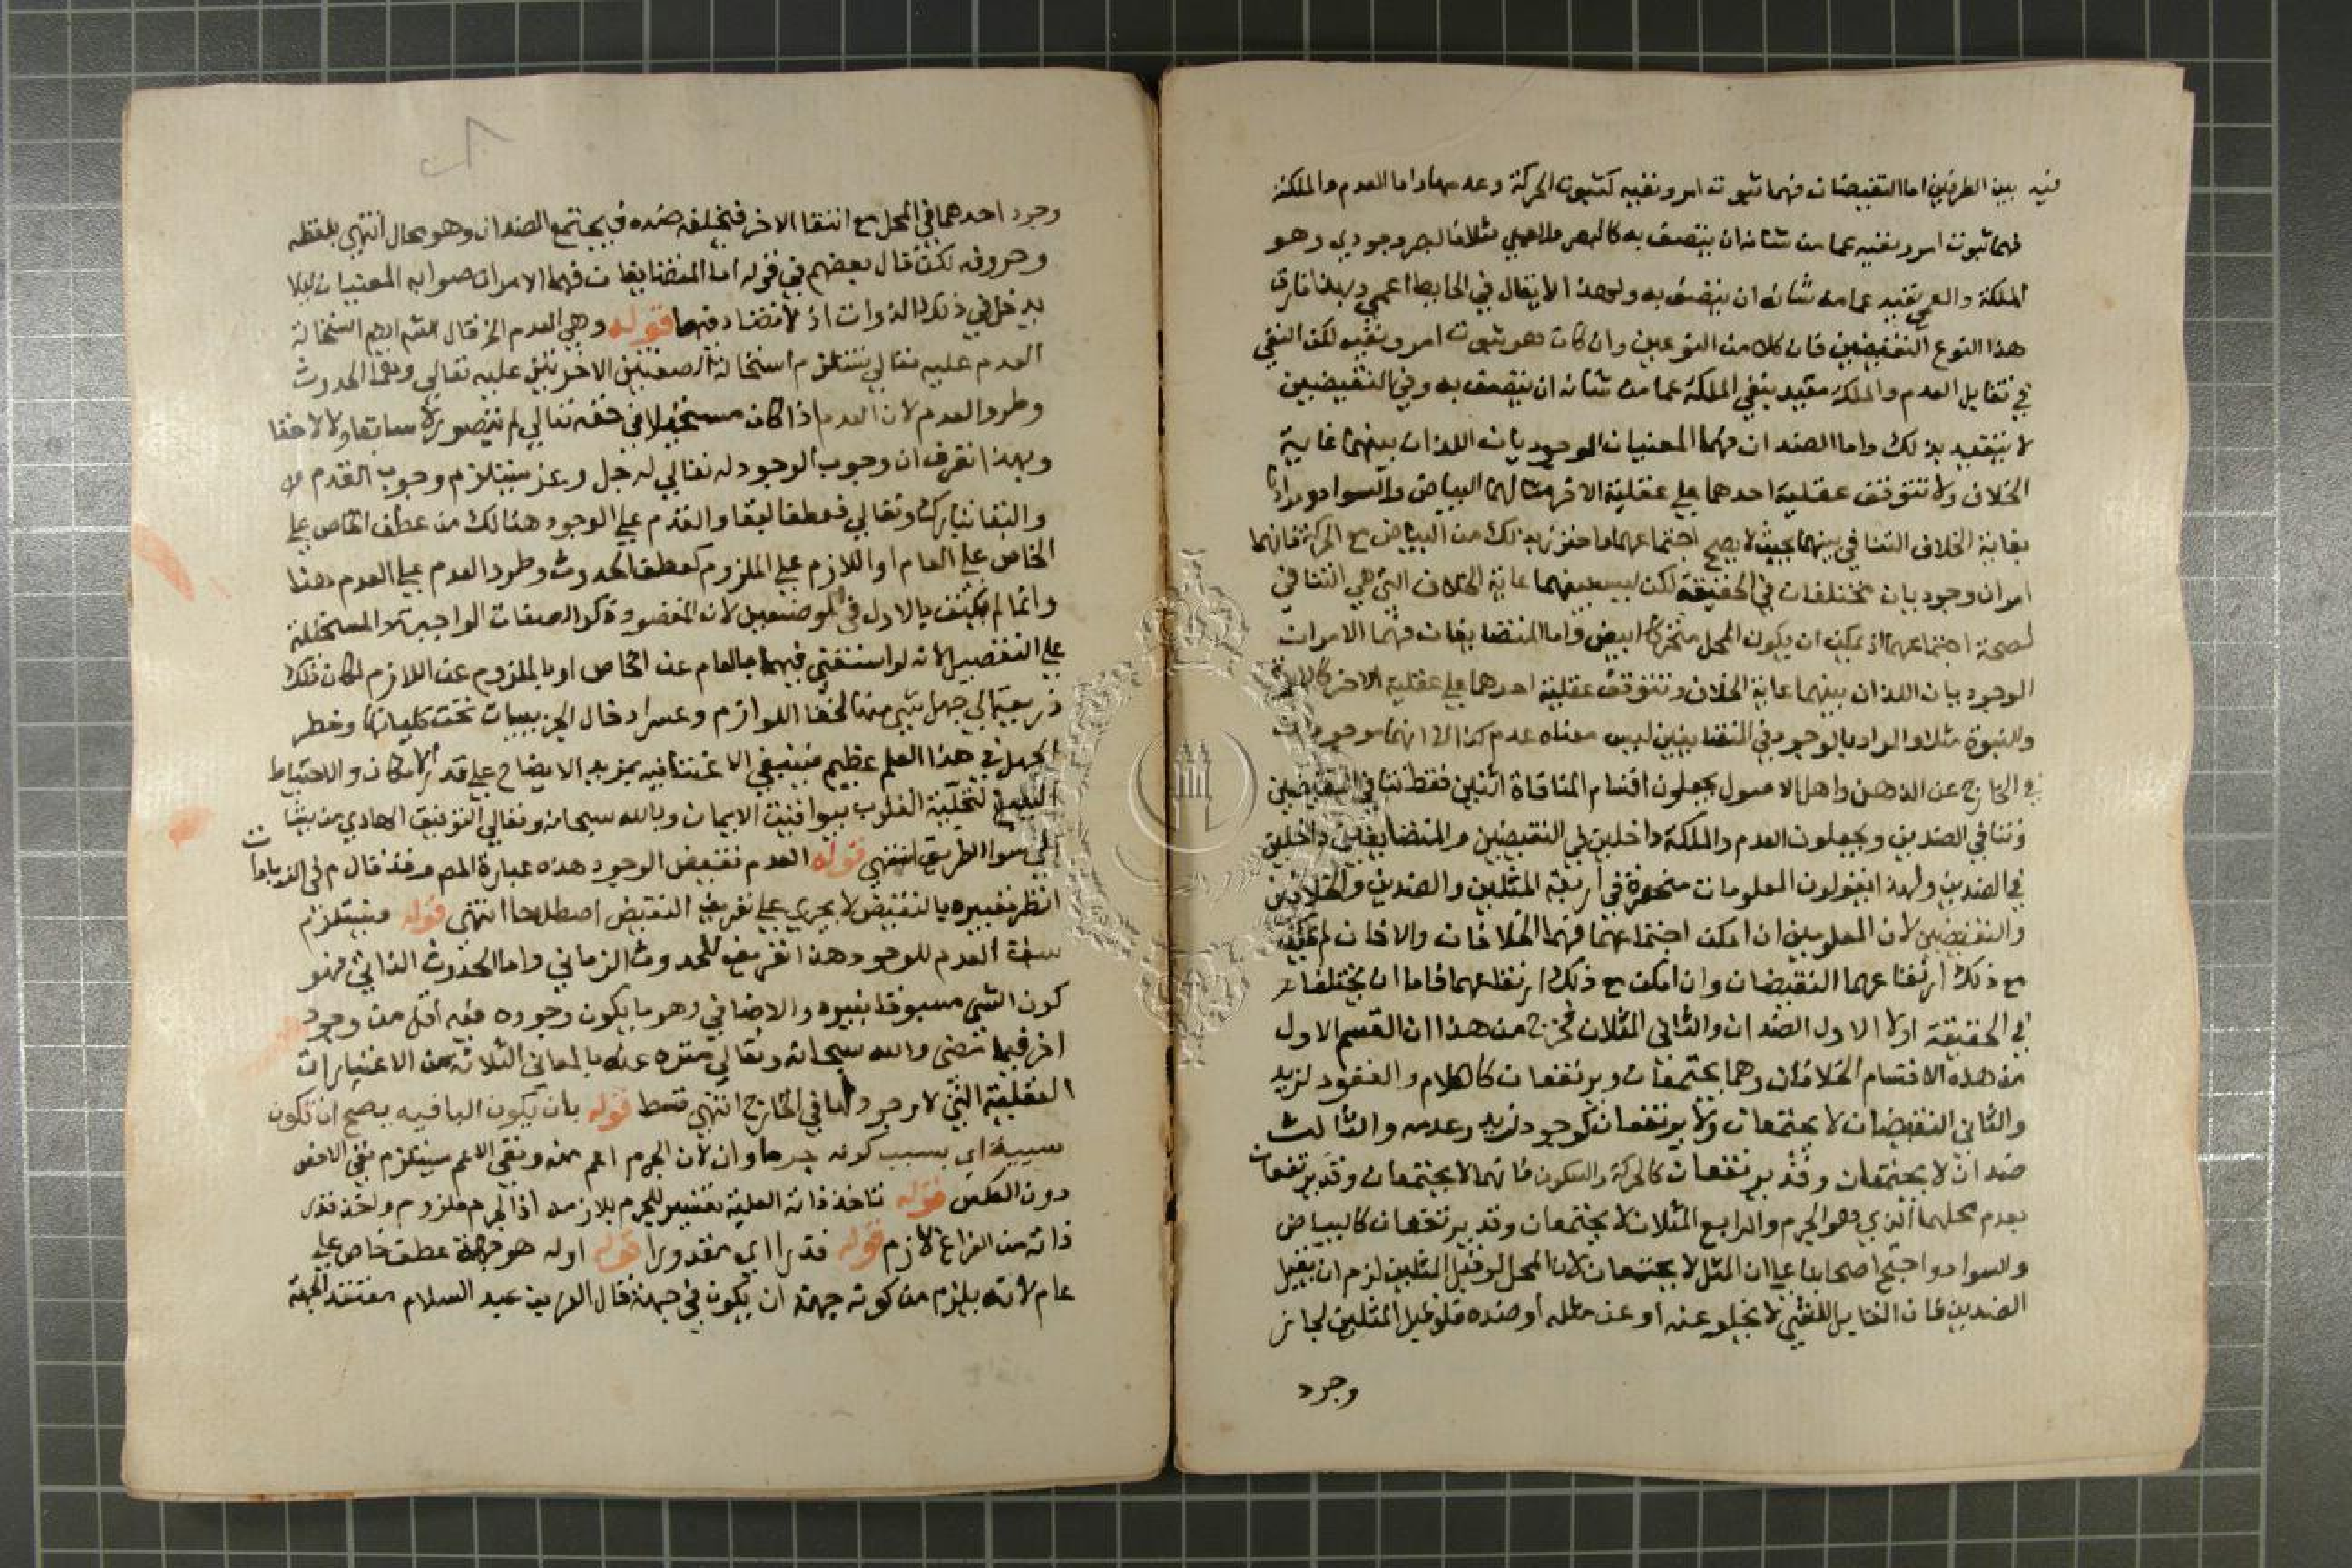 فيه بين الطرفين اما النقيضان فهما ثبوت امر ونفيه كثبوت الحركة وعدمها واما العدم والملكة
فهما ثبوت امر ونفيه عما من شانه ان يتصف به كالبصر والعمي مثلا فالبصر وجودي وهو
الملكة والعمي نفيه عما من شانه ان يتصف به ولهذا لا يقال في الحايط اعمي وبهذا فارق
هذا النوع النقيضين فان كلا من النوعين وان كان هو ثبوت امر ونفيه لكن النفي
في تقابل العدم والملكة مقيد بنفي الملكة عما من شانه ان يتصف به وفي النقيضين
لا يتقيد بذلك واما الضدان فهما المعنيان الوجوديان اللذان بينهما غاية
الخلاف ولا تتوقف عقلية احدهما علي عقلية الاخر مثالهما البياض والسواد ومرادنا
بغاية الخلاف التنافي بينهما بحيث لا يصح اجتماعهما واحترز بذلك من البياض مع الحركة فانهما
امران وجوديان مختلفان في الحقيقة لكن ليس بينهما غاية الخلاف التي هي التنافي
لصحة اجتماعهما اذ يمكن ان يكون المحل متحركا ابيض واما المتضايفان فهما الامران
الوجوديان اللذان بينهما غاية الخلاف وتتوقف عقلية احدهما علي عقلية الاخر كالابوة
والبنوة مثلا والمراد بالوجود في المتضايفين ليس معناه عدم كذا لا انهما موجودان
في الخارج عن الذهن واهل الاصول يجعلون اقسام المنافاة اثنين فقط تنافي النقيضين
وتنافي الضدين ويجعلون العدم والملكة داخلين في النقيضين والمتضايفين داخلين
في الضدين ولهذا يقولون المعلومات منحصرة في اربعة المثلين والضدين والخلافين
والنقيضين لان المعلومين ان امكن اجتماعهما فهما الخلافان والا فان لم يمكن
مع ذلك ارتفاعهما النقيضان وان امكن مع ذلك ارتفاعهما فاما ان يختلفا
في الحقيقة اولا الاول الضدان والثاني المثلان فخرج من هذا ان القسم الاول
من هذه الاقسام الخلافان وهما يجتمعان ويرتفعان كالكلام والقعود لزيد
والثاني النقيضان لا يجتمعان ولا يرتفعان كوجود زيد وعدمه والثالث
ضدان لا يجتمعان وقد يرتفعان كالحركة والسكون فانهما لا يجتمعان وقد يرتفعان
بعدم محلهما الذي هو الجرم والرابع المثلان لا يجتمعان وقد يرتفعان كالبياض
والسواد واحتج اصحابنا علي ان المثل لا يجتمعان لان المحل لو قبل المثلين لزم ان يقبل
الضدين فان القابل للشي لا يخلو عنه او عن مثله او ضده فلو قبل المثلين لجاز
وجود
وجود احدهما في المحل مع انتفا الاخر فيخلفه ضده فيجتمع الضدان وهو محال انتهي بلفظه
وحروفه لكن قال بعضهم في قوله اما المتضايفان فهما الامران صوابه المعنيان ليلا
يدخل في ذلك الذوات اذ لا تضاد فيها قوله وهي العدم الخ قال الشم ابهم استحالة
العدم عليه تعالي يستلزم استحالة الصفتين الاخرتين عليه تعالي وهما الحدوث
وطرو العدم لان العدم اذا كان مستحيلا في حقه تعالي لم يتصور لا سابقا ولا لاحقا
وبهذا تعرف ان وجوب الوجود له تعالي له جل وعز يستلزم وجوب القدم له
والبقا تبارك وتعالي فعطف البقا والقدم علي الوجود هنالك من عطف الخاص علي
الخاص علي العام او اللازم علي الملزوم كعطف الحدوث وطرو العدم علي العدم هنا
وانما لم يكتف بالاول في الموضعين لان المقصود ذكر الصفات الواجبة والمستحيلة
علي التفصيل لانه لو استغني فيهما بالعام عن الخاص او بالملزوم عن اللازم لكان ذلك
ذريعة الي جهل شي منها لخفا اللوازم وعسر ادخال الجزييات تحت كلياتها وخطر
الجهل في هذا العلم عظيم فينبغي الاعتنا فيه بمزيد الايضاح علي قدر الامكان والاحتياط
البليغ لتحلية القلوب بيواقيت الايمان وبالله سبحانه وتعالي التوفيق الهادي من يشا
الي سوا الطريق انتهي قوله العدم نقيض الوجود هذه عبارة المصـ وقد قال م في الزيادات
انظر تعبيره بالنقيض لا يجري علي تعريف النقيض اصطلاحا انتهي قوله فيستلزم
سبق العدم للوجود هذا تعريف للحدوث الزماني واما الحدوث الذاتي فهو
كون الشي مسبوقا بغيره والاضافي وهو ما يكون وجوده فيه اقل من وجود
اخر فيما مضي والله سبحانه وتعالي منزه عنه بالمعاني الثلاثة من الاعتبارات
العقلية التي لا وجود لها في الخارج انتهي فقط قوله بان يكون البا فيه يصح ان تكون
سببية اي بسبب كونه جرما وان لان الجرم اعم منه ونفي الاعم يستلزم نفي الاخص
دون العكس قوله تاخذ ذاته العلية تفسير للجرم بلازمه اذ الجرم ملزوم واخذ قدر
ذاته من الفراغ لازم قوله قدرا اي مقدورا قوله اوله هو جهة عطف خاص علي
عام لانه يلزم من كونه جهة ان يكون في جهة قال العز بن عبد السلام معتقد الجهة